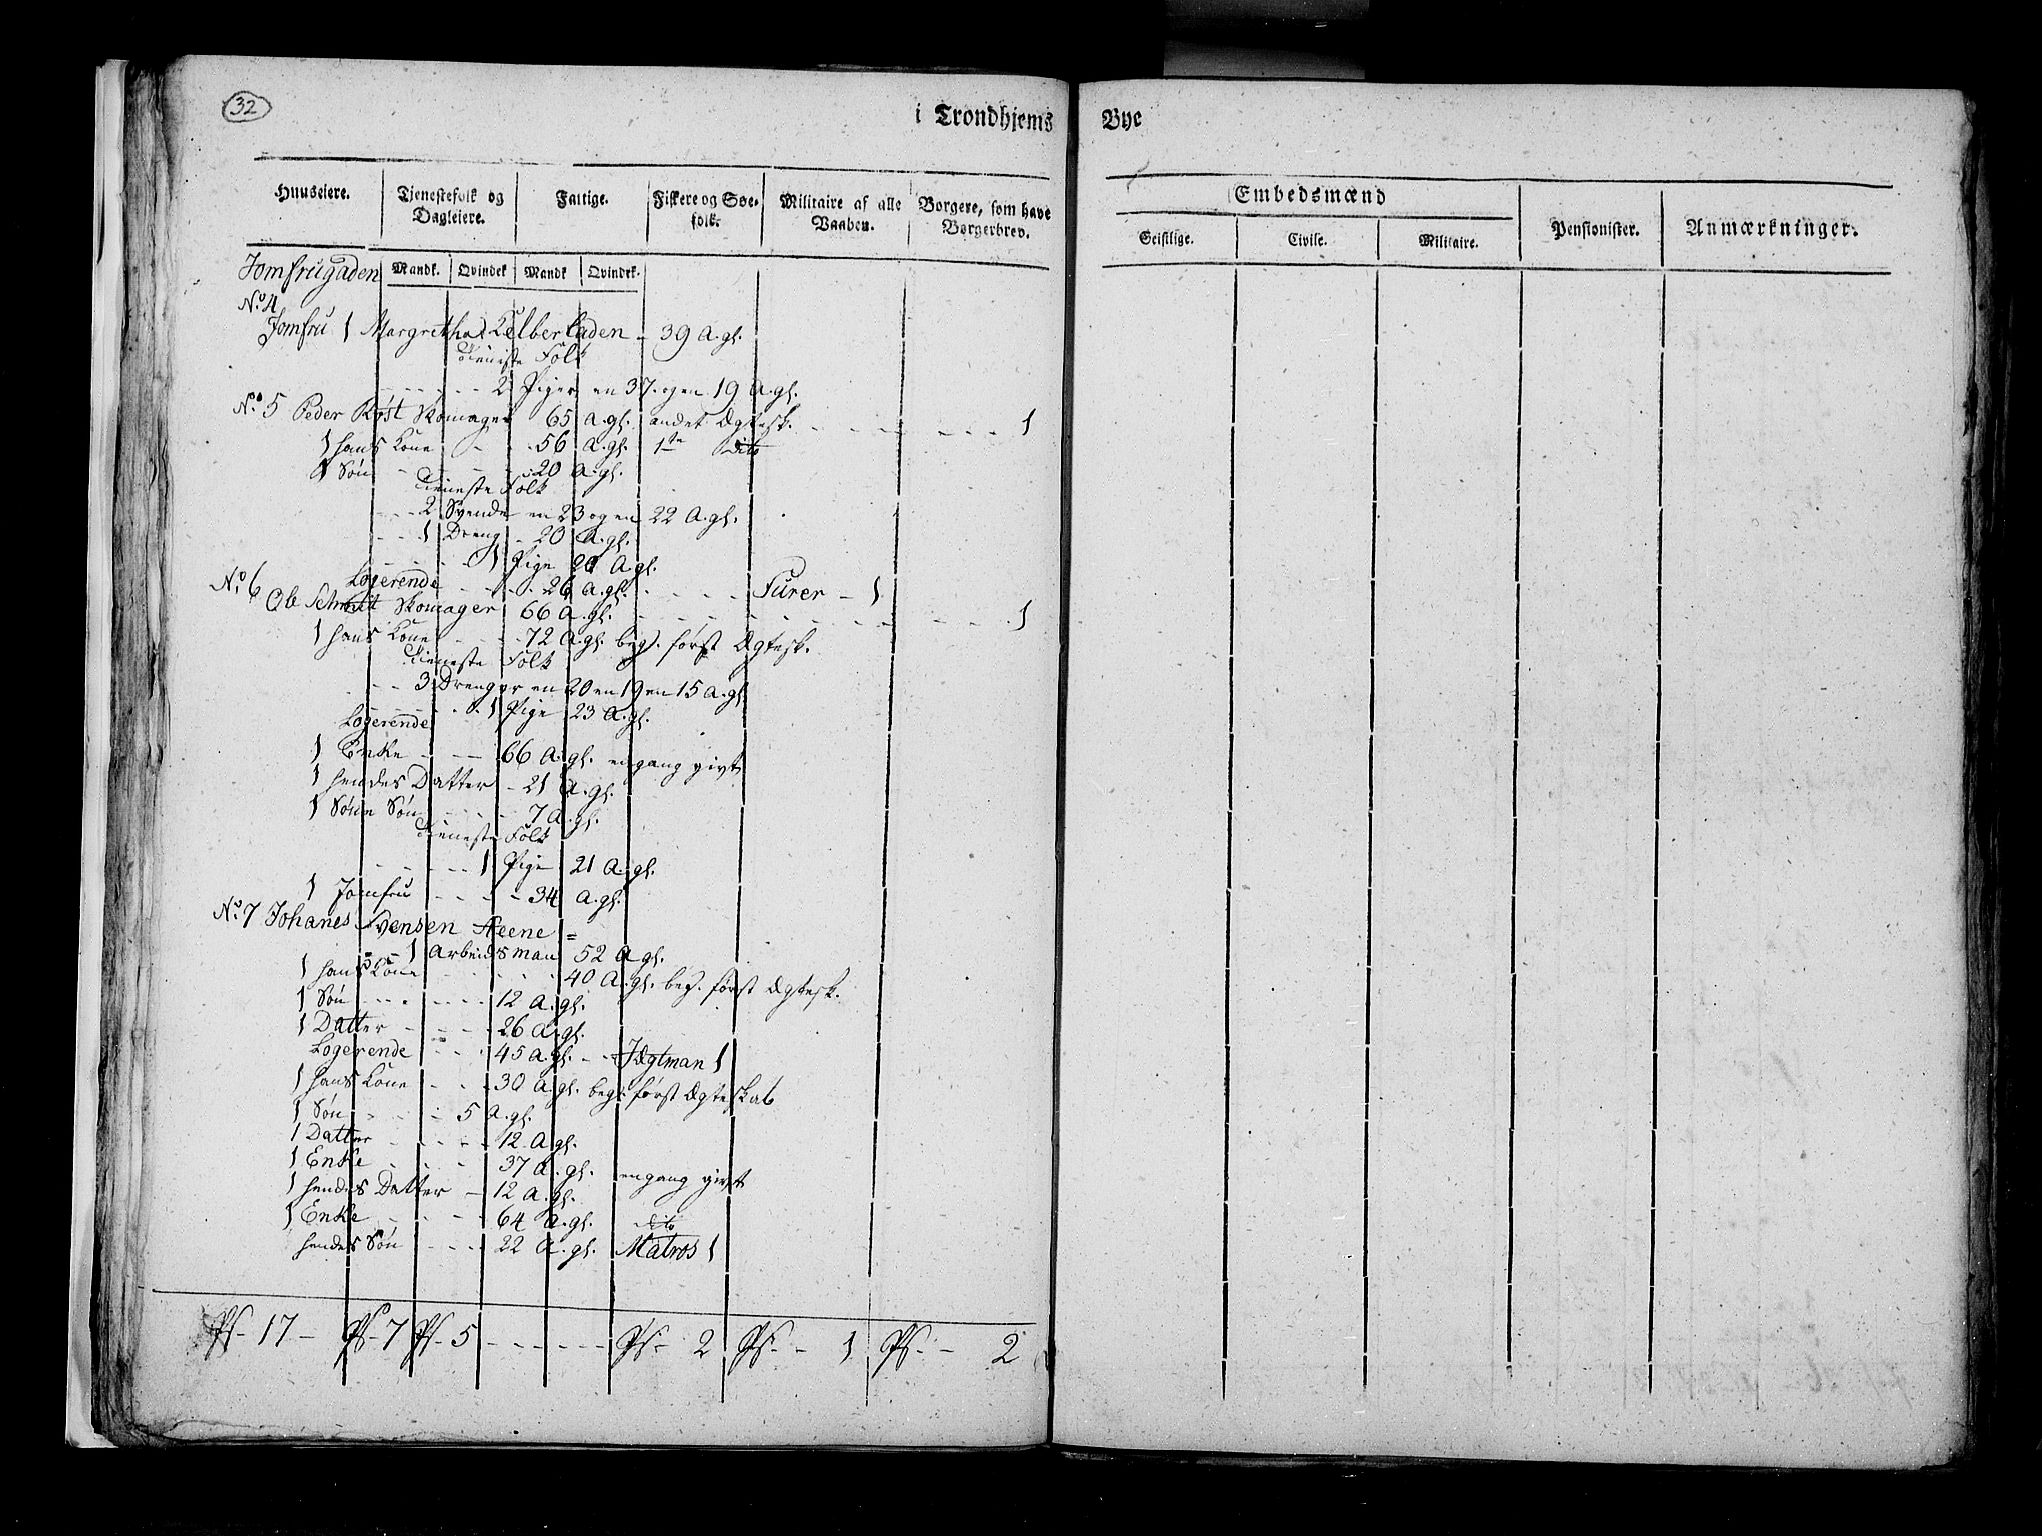 32
i Trondhjems Bye
Huuseiere. Tjenestefolk og Dagleiere. Fattige. Fiskere og Søefolk. Militaire af alle Vaaben. Borgere, som have Borgerbrev. Embedsmænd Pensionister. Anmærkninger.
Geistlige. Civile. Militaire.
Mandk. Qvindek Mandk Qvindek.
Jomfrugaden
No. 4
Jomfru 1 Margretha 39 A. gl.
Tieniste Folk
2 Piger en 37 og en 19 A. gl.
No. 5 Peder Røst Skomager 65 A. gl. andet Ægtesk. 1
1 hans Kone 56 A. gl. 1te dito
1 Søn 20 A. gl.
Tieneste Folk
2 Svende en 23 og en 22 A. gl.
1 Dreng 20 A. gl.
1 Pige 20 A. gl.
Logerende 26 A. gl. Furer 1
No. 6 Ole Schmit Skomager 66 A. gl. 1
1 hans Kone 72 A. gl. beg. først Ægtesk.
Tieneste Folk
3 Drenger en 20 en 19 en 15 A. gl.
1 Pige 23 A. gl.
Logerende
1 Enke 66 A. gl. engang givt
1 hendes Datter 21 A. gl.
1 Sønne Søn 7 A. gl.
Tieneste Folk
1 Pige 21 A. gl.
1 Jomfru 34 A. gl.
No. 7 Johanes Svensen Steene =
1 Arbeidsman 52 A. gl.
1 hans Kone 40 A. gl. beg. først Ægtesk.
1 Søn 12 A. gl.
1 Datter 26 A. gl.
Logerende 45 A. gl. Jægtman 1
1 hans Kone 30 A. gl. beg. først Ægteskab
1 Søn 5 A. gl.
1 Datter 12 A. gl.
1 Enke 37 A. gl. engang givt
1 hendes Datter 12 A. gl.
1 Enke 64 A. gl. dito
hendes Søn 22 A. gl. Matros 1
Ps. 17 Ps. 7 Ps. 5 Ps. 2 Ps. 1 Ps. 2